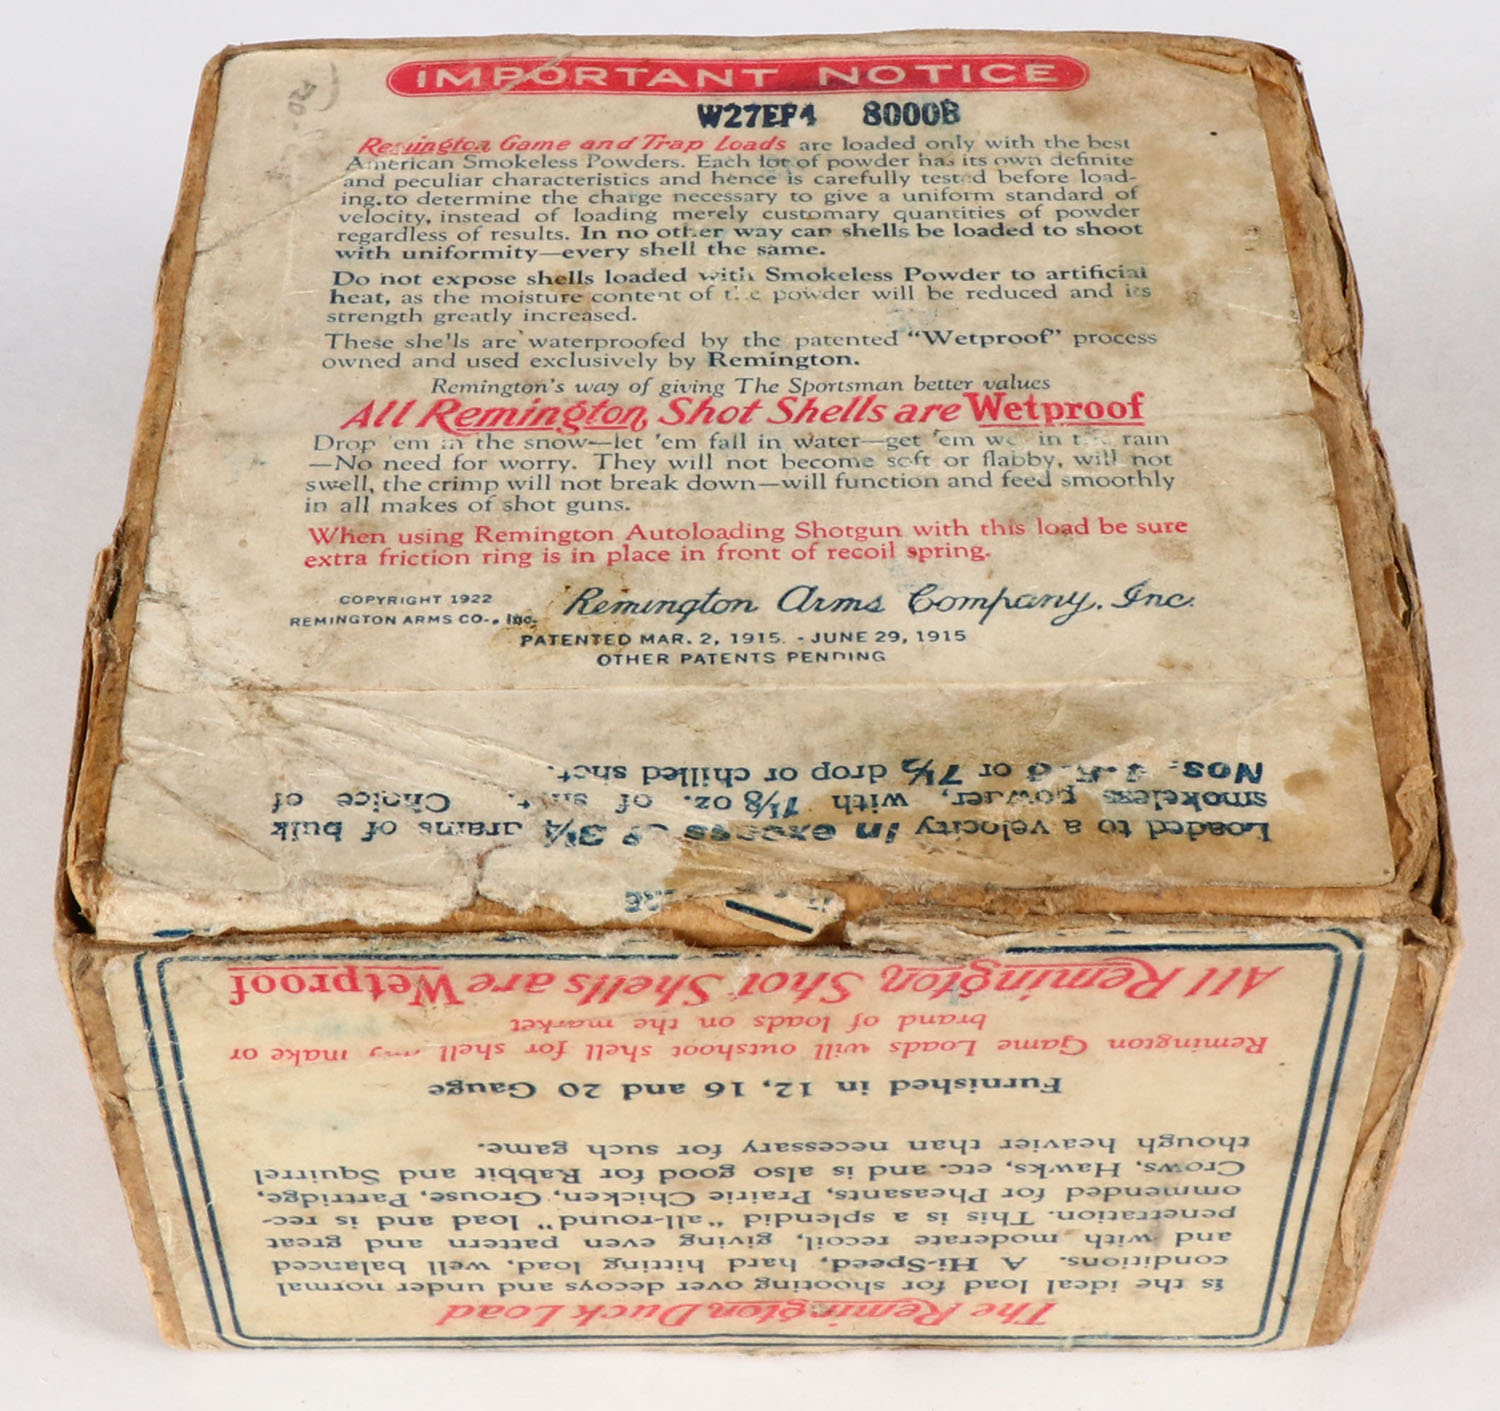 IMPORTANT NOTICE
W27EP4 8000B
Remington Game and Trap Loads are loaded only with the best
American Smokeless Powders. Each lot of powder has its own definite
and peculiar characteristics and hence is carefully tested before load-
ing, to determine the charge necessary to give a uniform standard of
velocity, instead of loading merely customary quantities of powder
regardless of results. In no other way can shells be loaded to shoot
with uniformity—every shell the same.
Do not expose shells loaded with Smokeless Powder to artificial
heat, as the moisture content of the powder will be reduced and its
strength greatly increased.
These shells are waterproofed by the patented "Wetproof" process
owned and used exclusively by Remington.
Remington's way of giving The Sportsman better values
All Remington Shot Shells are Wetproof
Drop 'em in the snow—let 'em fall in water—get 'em wet in the rain
—No need for worry. They will not become soft or flabby, will not
swell, the crimp will not break down—will function and feed smoothly
in all makes of shot guns.
When using Remington Autoloading Shotgun with this load be sure
extra friction ring is in place in front of recoil spring.
COPYRIGHT 1922
REMINGTON ARMS CO., Inc.
Remington Arms Company, Inc.
PATENTED MAR. 2, 1915. - JUNE 29, 1915
OTHER PATENTS PENDING
Loaded to a velocity in excess of 3¼ drams of bulk
smokeless powder, with 1⅛ oz. of shot. Choice of
Nos. or 7½ drop or chilled shot.
The Remington Duck Load
is the ideal load for shooting over decoys and under normal
conditions. A Hi-Speed, hard hitting load, well balanced
and with moderate recoil, giving even pattern and great
penetration. This is a splendid "all-round" load and is rec-
ommended for Pheasants, Prairie Chicken, Grouse, Partridge,
Crows, Hawks, etc. and is also good for Rabbit and Squirrel
though heavier than necessary for such game.
Furnished in 12, 16 and 20 Gauge
Remington Game Loads will outshoot shell for shell any make or
brand of loads on the market
All Remington Shot Shells are Wetproof